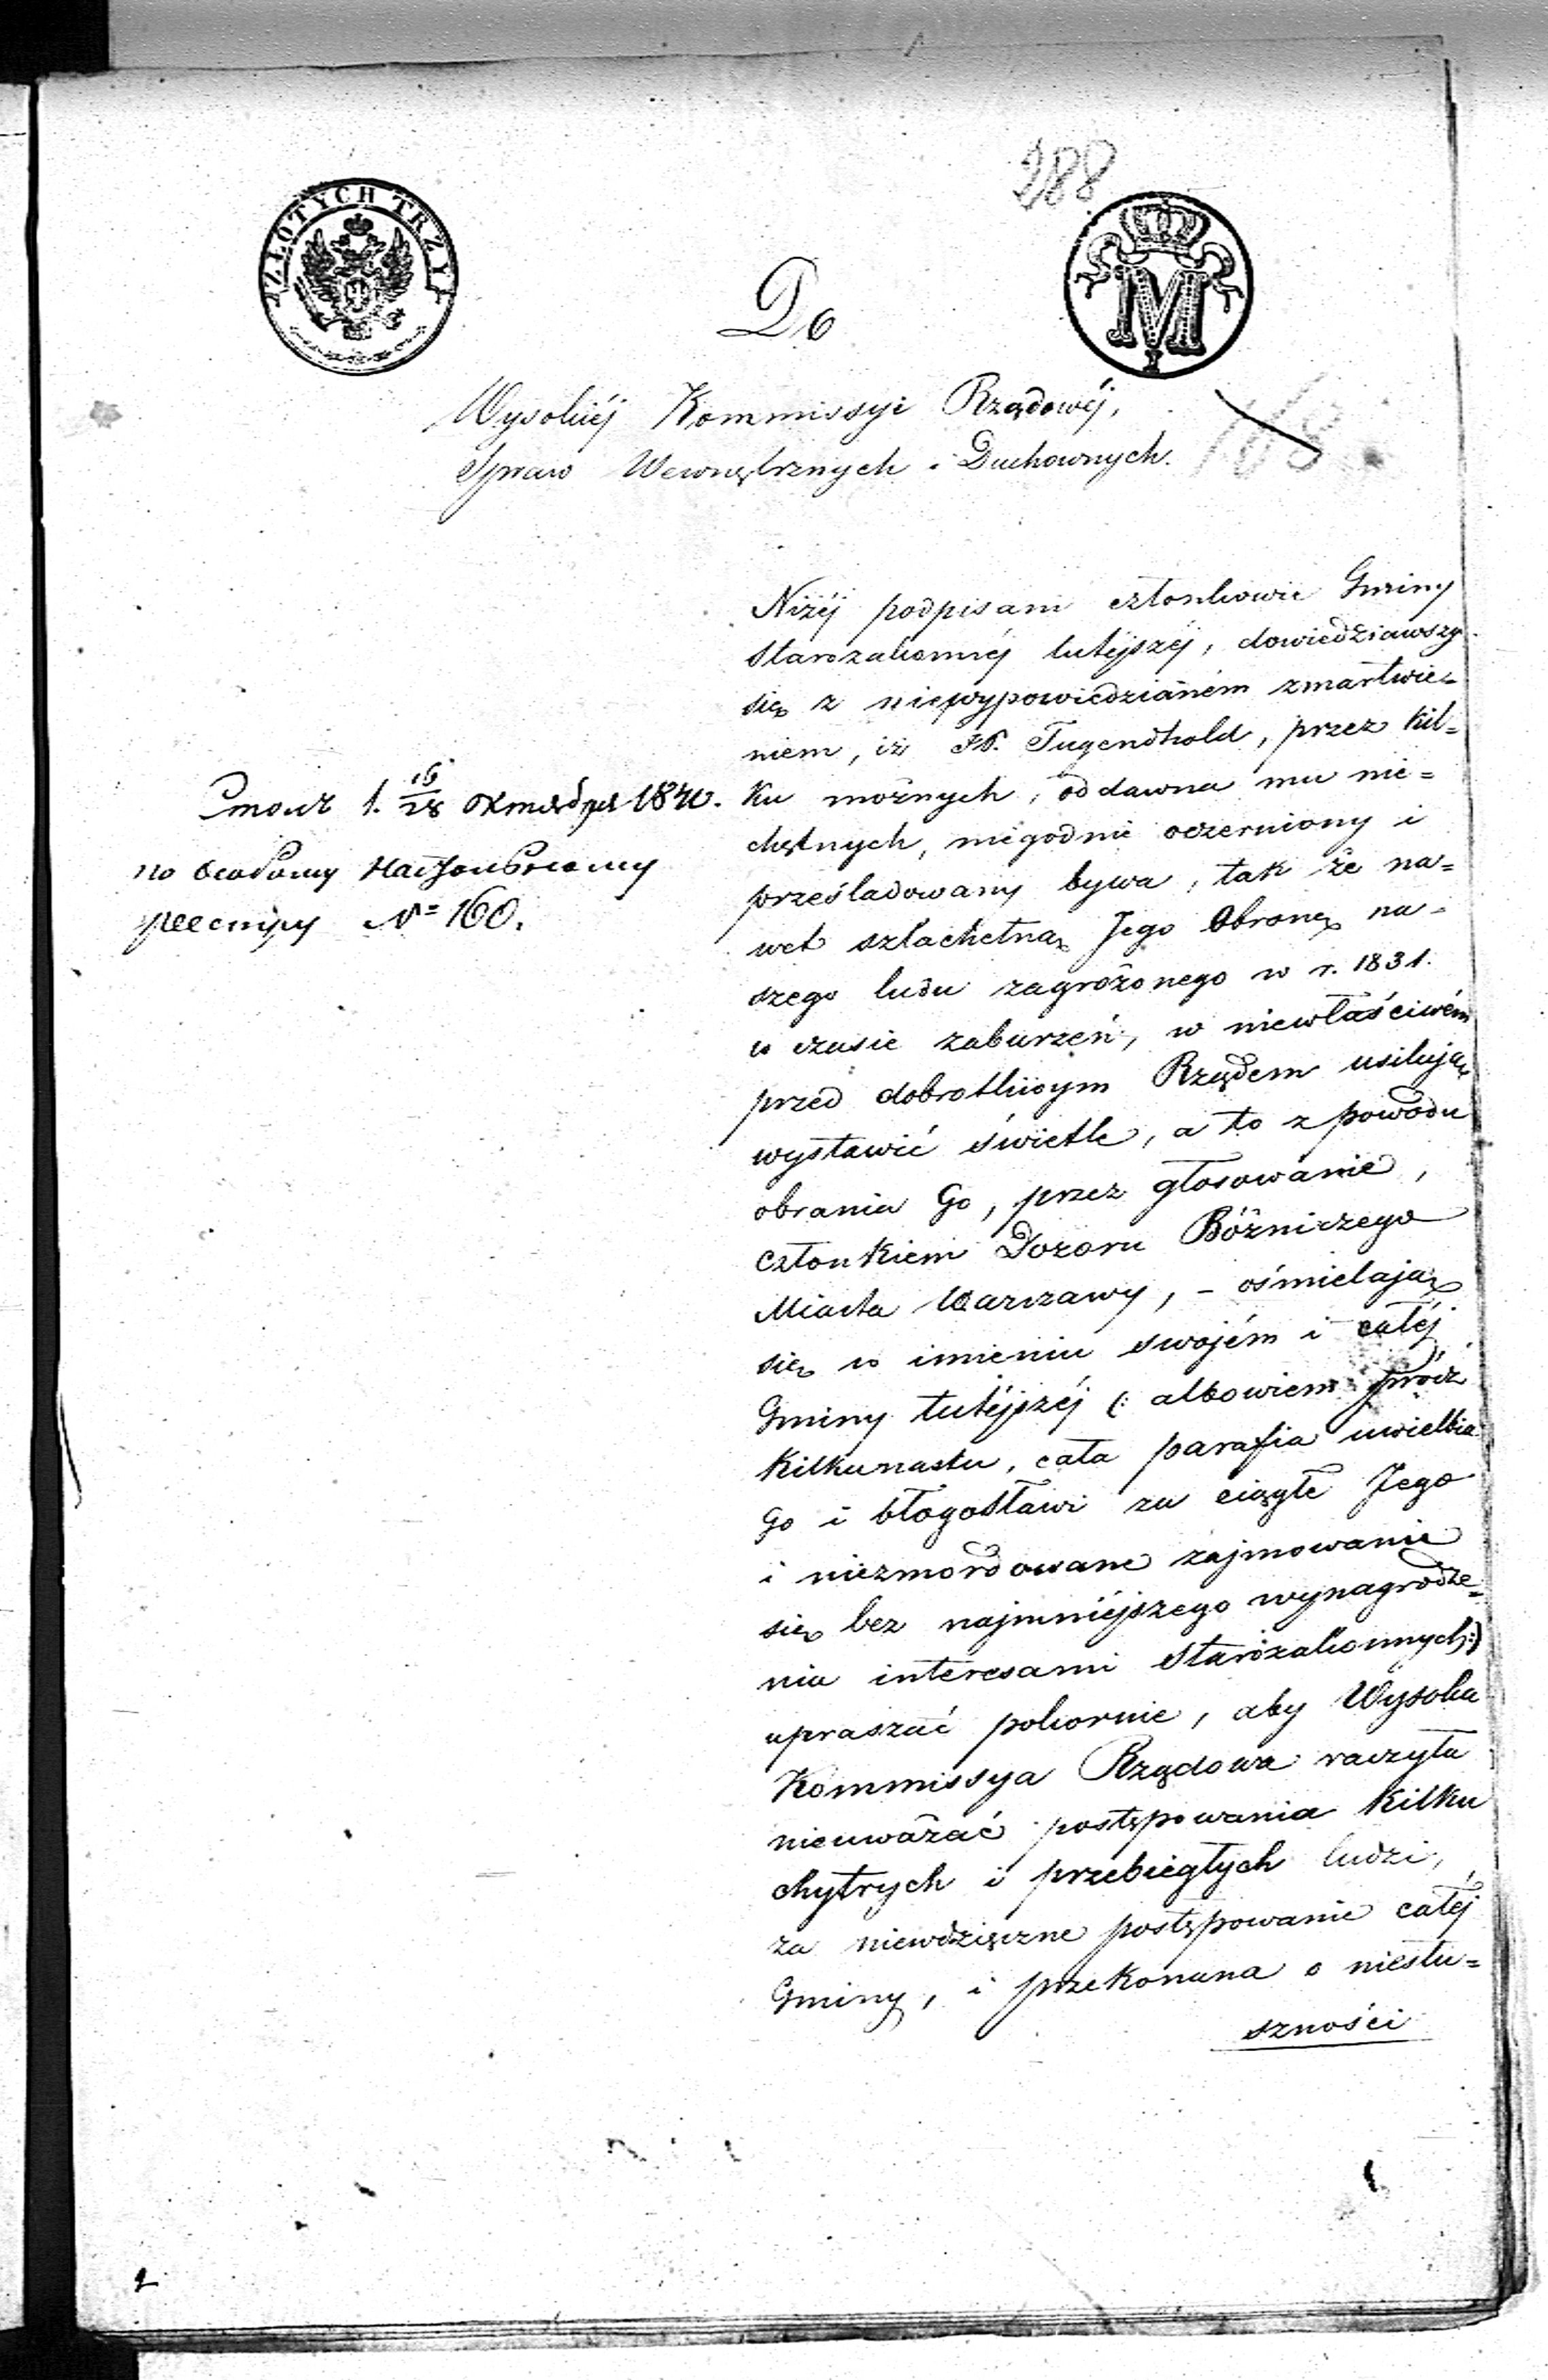 288
ZŁOTYCH TRZY
M
Do
Wysokiéj Kommissyi Rządowéj,
Spraw Wewnętrznych i Duchownych.
168
Niżéj podpisani członkowie Gminy
Starozakonnéj tutéjszéj, dowiedziawszy
się z niewypowiedzianém zmartwie-
niem, iż JP. Tugendhold, przez kil=
ku możnych, oddawna mu nie=
chętnych, niegodnie oczerniony i
prześladowany bywa, tak że na=
wet szlachetną Jego Obronę na-
szego ludu zagrożonego w r. 1831.
w czasie zaburzeń, w niewłaściwém
przed dobrotliwym Rządem usiłują
wystawić świetle, a to z powodu
obrania Go, przez głosowanie,
Członkiem Dozoru Bóżniczego
Miasta Warszawy, - ośmielają
się w imieniu swojém i całéj
Gminy tutéjszéj (: albowiem prócz
kilkunastu, cała parafia uwielbia
Go i błogosławi za ciągłe Jego
i niezmordowane zajmowanie
się bez najmniéjszego wynagrodze=
nia interesami Starozakonnych:)
upraszać pokornie, aby Wysoka
Kommissya Rządowa raczyła
nieuważać postępowania kilku
chytrych i przebiegłych ludzi,
za niewdzięczne postępowanie całéj
Gminy, i przekonana o niesłu=
szności
16/28 Октября 1840.
по
No 160.